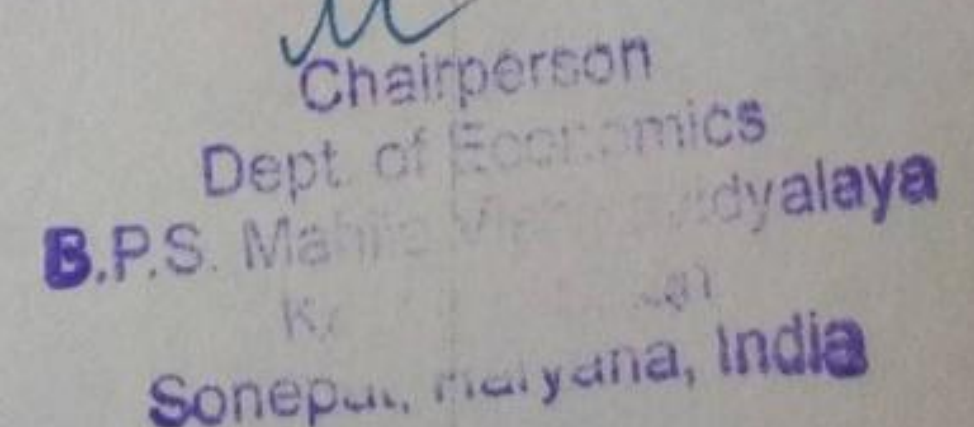 Chairperson
Dept. of Economics
B.P.S. Mahila Vishwavidyalaya
Sonepat, Haryana, India